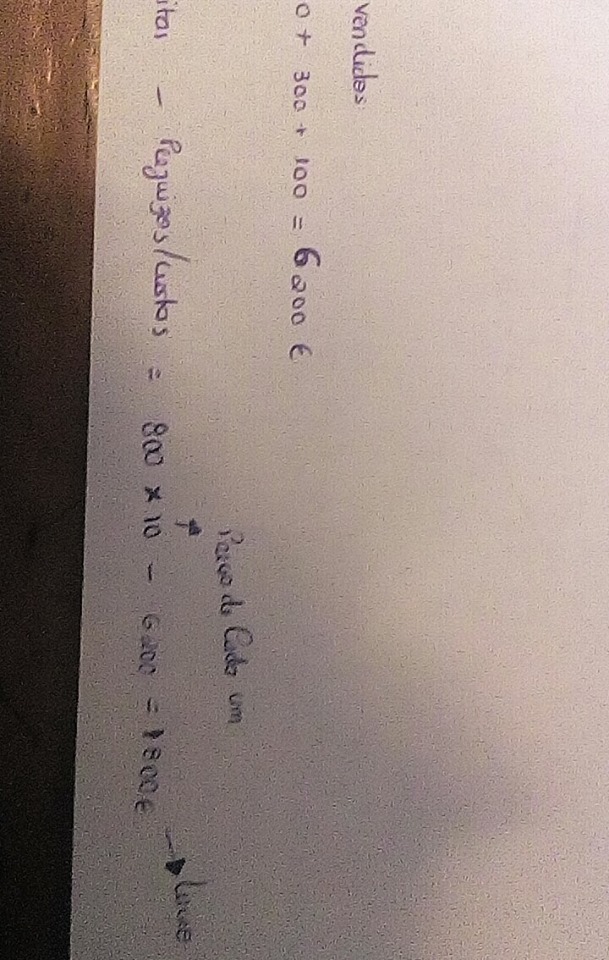 vendidos
0 + 300 + 100 = 6200 €
Preço de Cada um
itas - Prejuizos/custos = 800 × 10 - 6200 = 1800 €